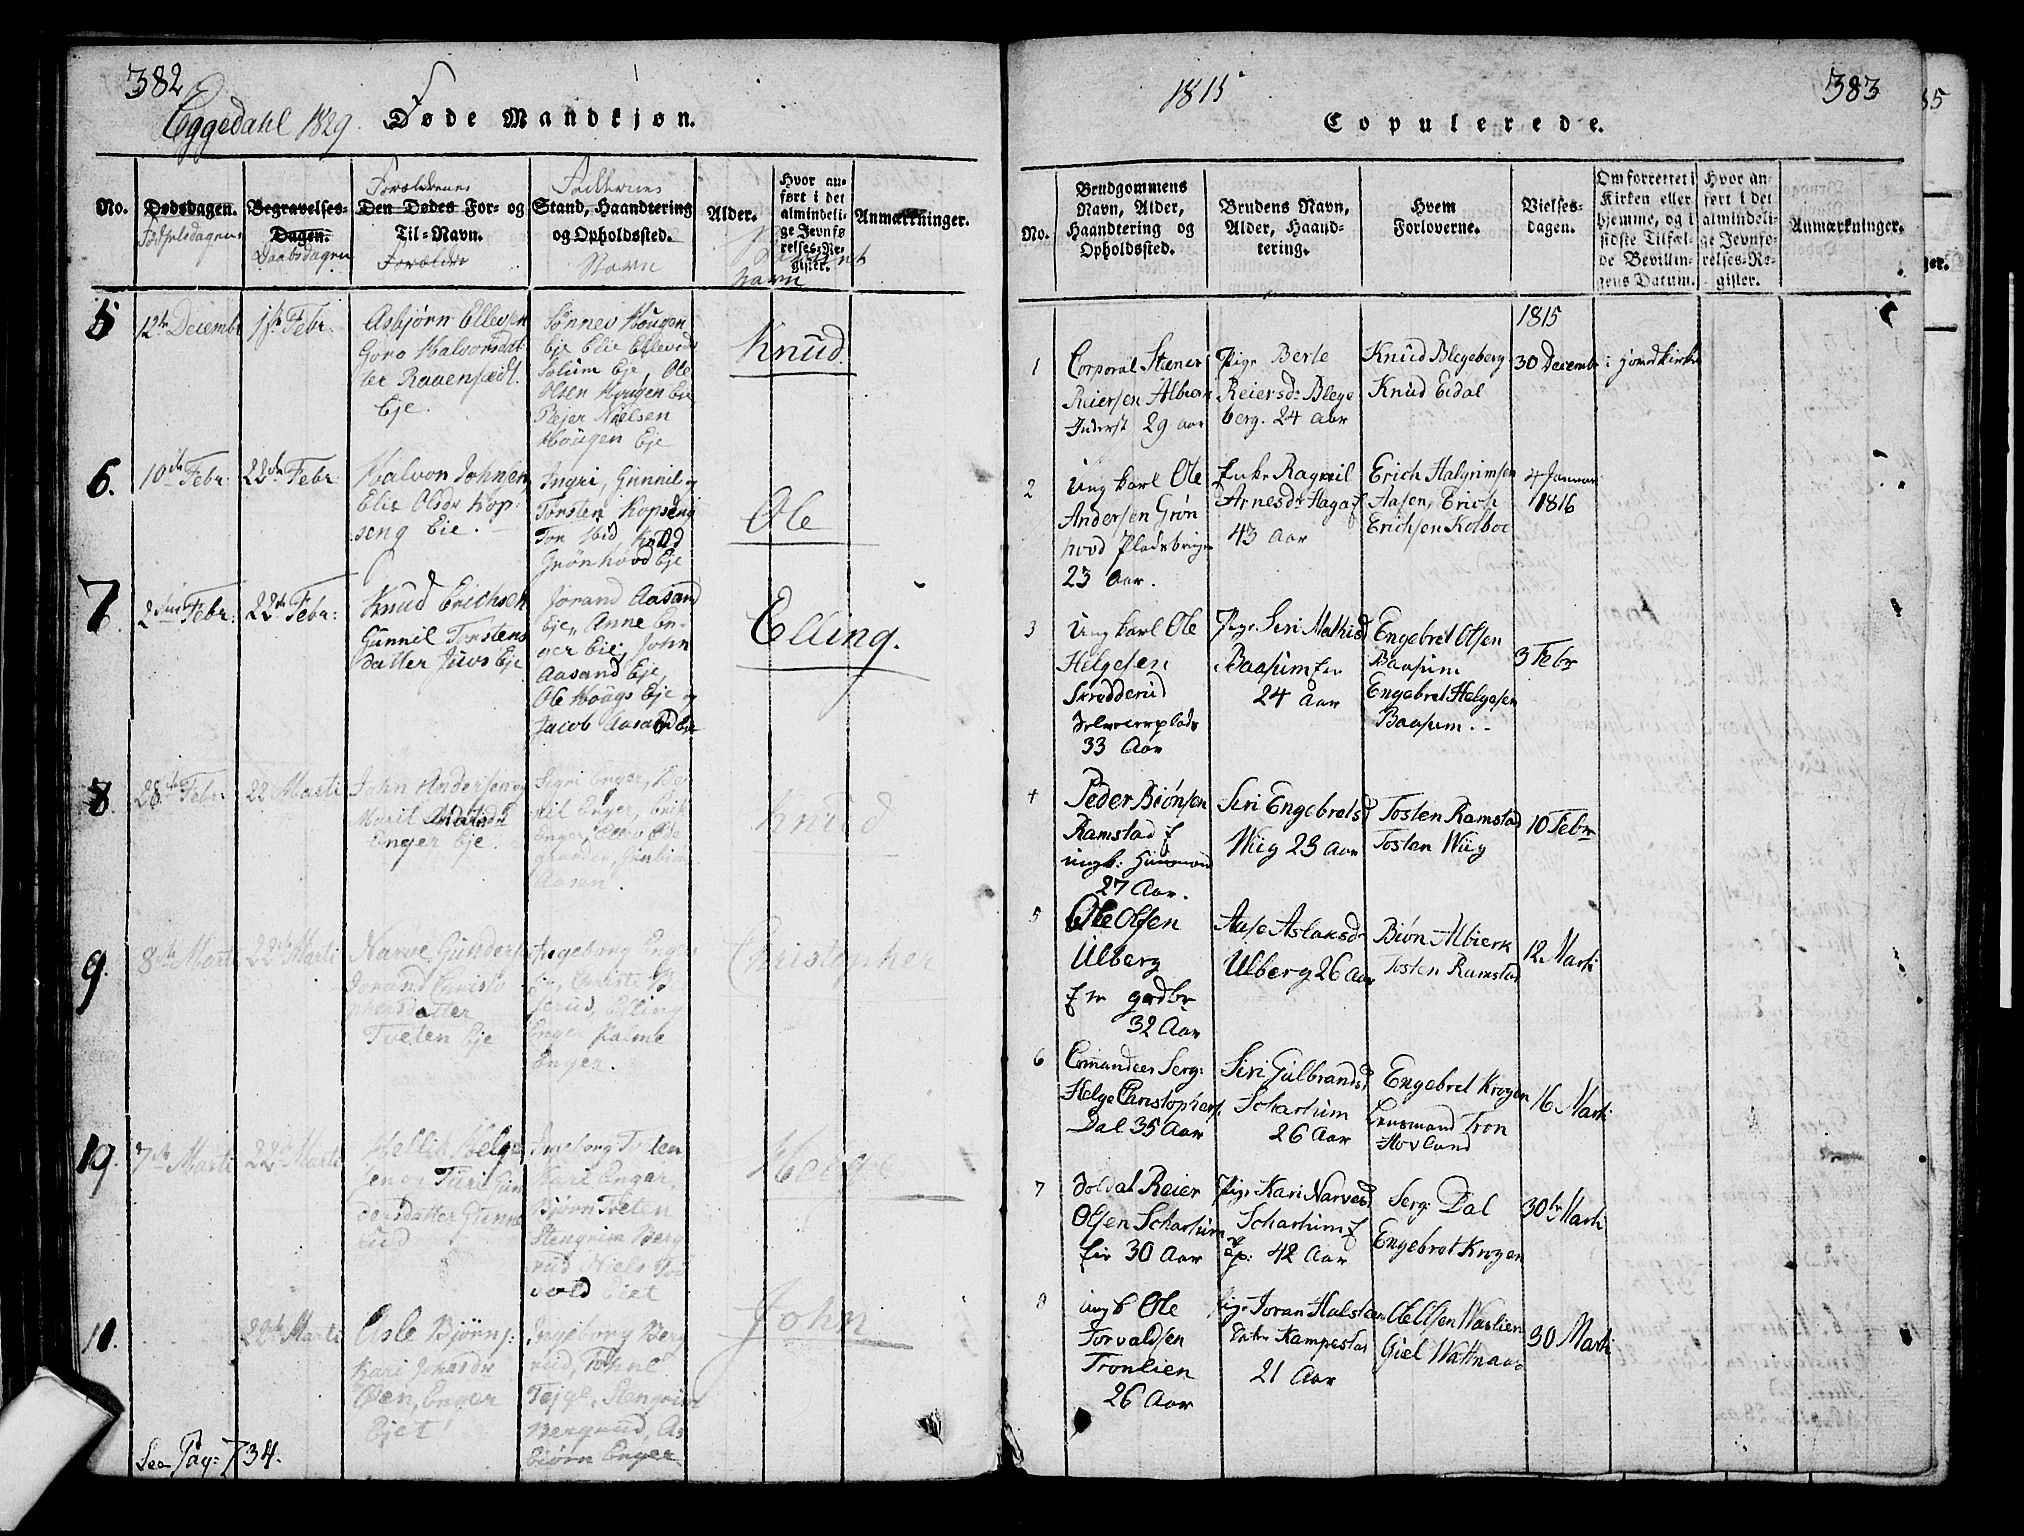 382
Eggedahl 1829. Døde Mandkjøn.
No.
Dødsdagen.
Fødselsdagen
Begravelses-
Dagen.
Daabsdagen
Forældrenes
Den Dødes For- og
Til-Navn.
Forældre
Faddernes
Stand, Haandtering
og Opholdssted.
Navn
Alder.
Barnets
Navn
Hvor an-
ført i det
almindeli-
ge Jevnfø
relses-Re-
gister.
Anmærkninger.
5
12te Decembr
1ste Febr.
Asbjørn Ellevsen
Goro Halvorsdat
ter Ravensædt.
Eje.
Sönnev Hougen
Eje Elie Ellevsdr
Solum Eje, Ole
Olsen Hougen Eie
Rejer Nielsen
Hougen Eje
Knud.
6.
10de Febr.
22de Febr.
Halvor Johnsen
Elie Olsdr Kop-
seng Eie.
Ingri, Gunnil og
Torsten Kopseng
Ton Hid, Knud
Grönhovd Eje
Ole
7.
2den Febr.
22de Febr.
Knud Erichsen
Gunnil Torstens
datter Juvs Eje
Jorand Aasand
Eje, Anne En-
ger Eie, John
Aasand Eje,
Ole Hougs Eje og
Jacob Aasand Eje
Elling.
8.
28de Febr.
22 Marti
John Andersen og
Marit
Enger Eje.
Sigri Enger,
Enger, Erik
Enger,
Aasen.
Knud
9.
8de Marti
22de Marti
Narve Gunders
Jorand Christo
phersdatter
Tveten Eje
Ingeborg Eng
serud, Elling
Enger Palme
Enger.
Christopher
10.
7de Marti
22de Marti
Kellik Helge
sen og Turi Gun
dersdatter Gunne
rud
Ingeborg Tveten
Kari Enger,
Bjørn Tveten
Stengrim Berg
rud Niels
vold Eiet
Helge
11.
22de Marti
Asle Bjørns:
Kari
Enger
Ejet
Ingeborg Berg
rud, Tohne
Tejge, Stengrim
Bergrud, As
biørn Enger
John
See Pag: 734.
1815
383
Copulerede.
No.
Brudgommens
Navn, Alder,
Haandtering og
Opholdssted.
Brudens Navn,
Alder, Haand-
tering.
Hvem
Forloverne.
Vielses-
dagen.
Om forrettet i
Kirken eller
hjemme, og i
sidste Tilfæl-
de Bevillin-
gens Datum.
Hvor an-
ført i det
almindeli-
ge Jevnfø-
relses-Re-
gister.
Anmærkninger.
1815
1
Corporal Stener
Reiersen Albiern
Inderst 29 aar
Pige Berte
Reiersdr Blege
berg. 24 aar
Knud Blegeberg
Knud Eidal
30 Decembr
i Hovedkirke
2
Ungkarl Ole
Andersen Grøn
hovd Pladsbruger
23 aar.
Enke Ragnil
Arnesdr Haga f
43 aar
Erich Halgrimsen
Aasen, Erich
Erichsen Kolboe
4 Januar
1816
3
Ungkarl Ole
Helgesen
Skredderud
33 Aar
Pige Siri Mathisd
Baasum Eie
24 aar
Engebret Olsen
Baasum
Engebret Helgesen
Baasum.
3 Febr
4
Peder Biönsen
Ramstad f
ungk: Huusmand
27 Aar.
Siri Engebretsd
Wiig 23 aar
Tosten Ramstad
Tosten Wiig
10 Febr
5
Ole Olsen
Ulberg
f m gaardbr
32 Aar
Aase Aslaksdr
Ulberg 26 aar
Biøn Albierk
Tosten Ramstad
12 Marti
6
Commandeer Serg:
Helge Christophers.
Dal 35 Aar
Siri Gulbrandsd
Scharhum
26 Aar
Engebret Krogen
Lensmand Tron
Hovland
16 Marti
7
Soldat Reier
Olsen Scharhum
Eie 30 Aar
Pige Kari Narvesd
Scharhum f
42 Aar
Serg: Dal
Engebret Krogen
30te Marti
8
Ungk Ole
Torvaldsen
Tronlien
26 Aar
Pige Joran Halsten
Datr Kampestad
21 Aar
Warlien
Giel Wattnaas
30 Marti